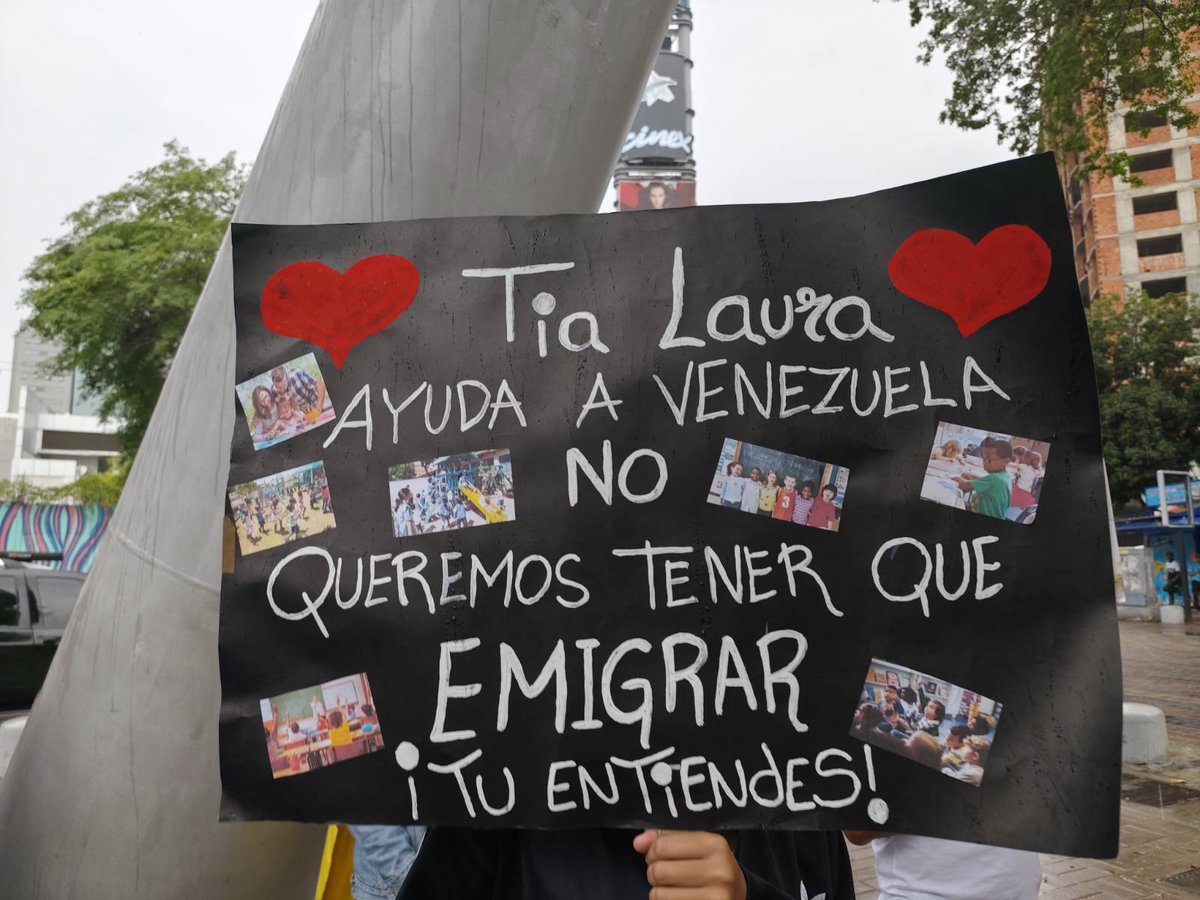 cinex
Tia Laura
AYUDA A VENEZUELA
NO
QUEREMOS TENER QUE
EMIGRAR
¡TU ENTIENDES!